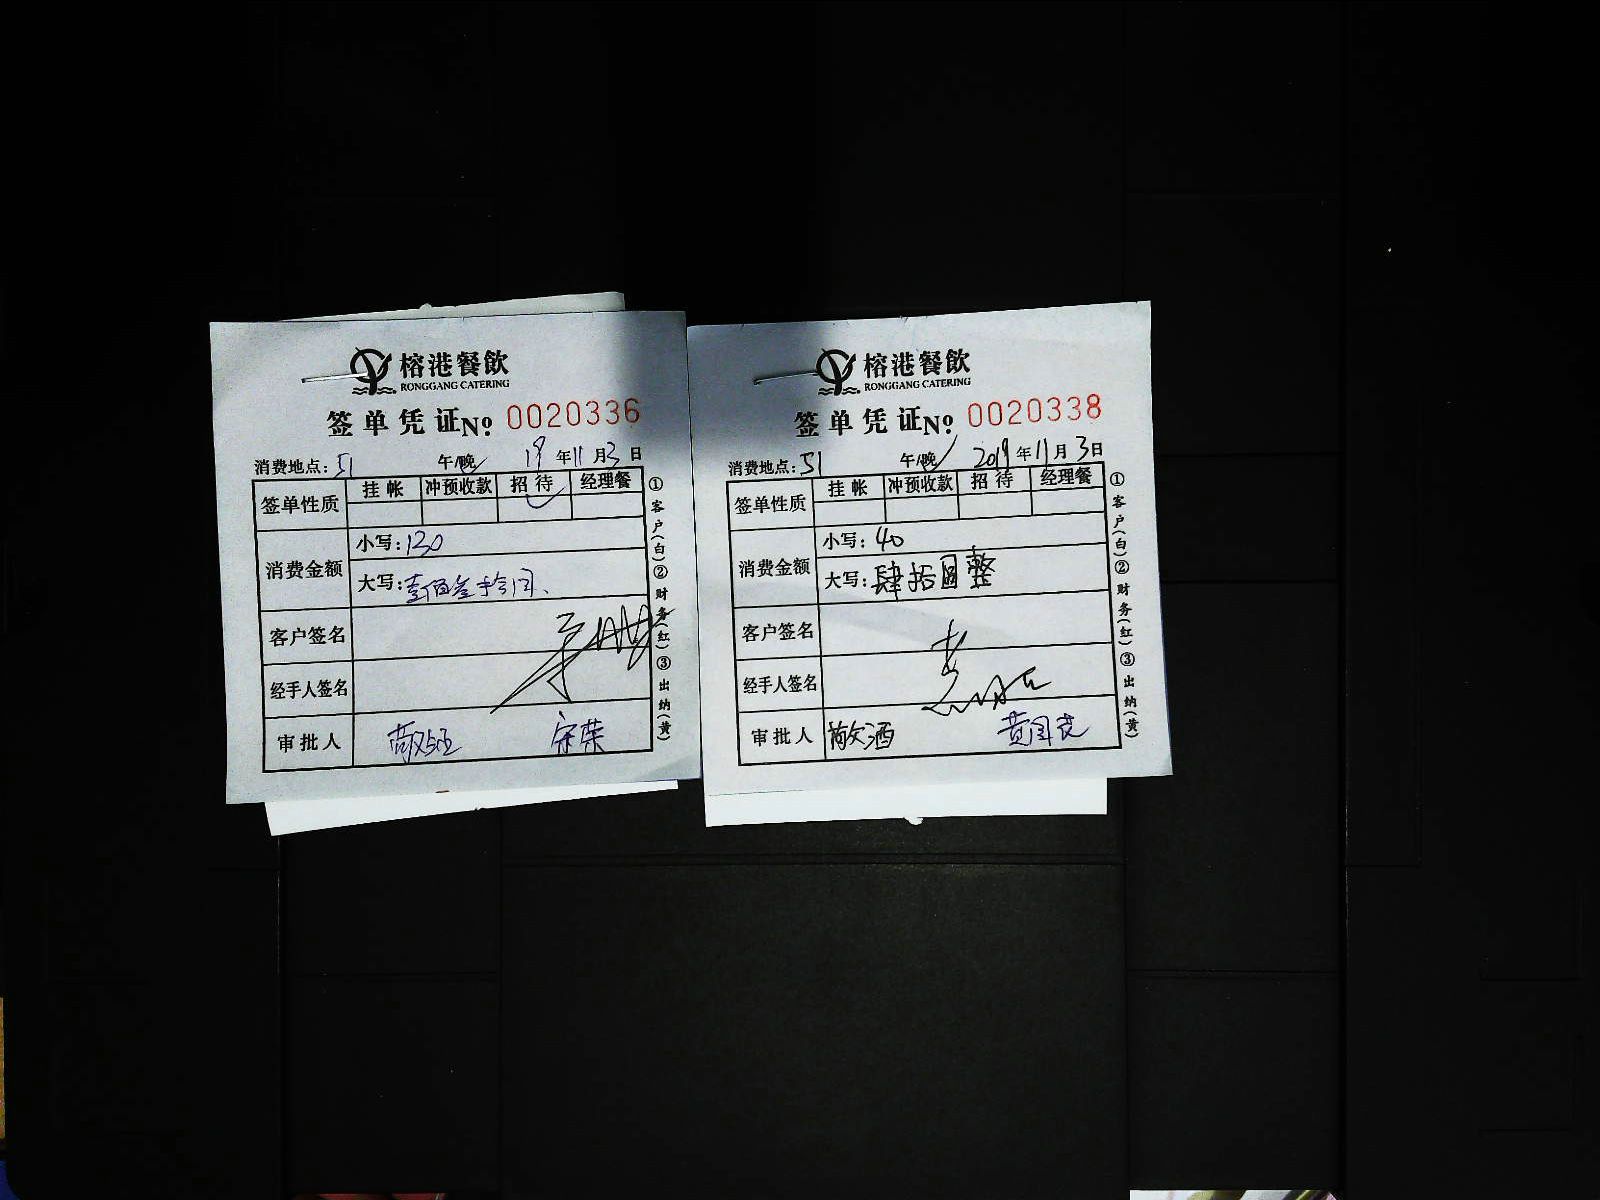 榕港餐飲
RONGGANG CATERING
签单凭证No. 0020336
消费地点: 51 午/晚 19年11月3日
签单性质 挂帐 冲预收款 招待 经理餐
消费金额
小写: 130
大写: 壹佰叁拾
客户签名
经手人签名
审批人
①客户(白)②财务(红)③出纳(黄)
榕港餐飲
RONGGANG CATERING
签单凭证No. 0020338
消费地点: 51 午/晚 2019年11月3日
签单性质 挂帐 冲预收款 招待 经理餐
消费金额
小写: 40
大写: 肆拾圆整
客户签名
经手人签名
审批人 敬酒
①客户(白)②财务(红)③出纳(黄)